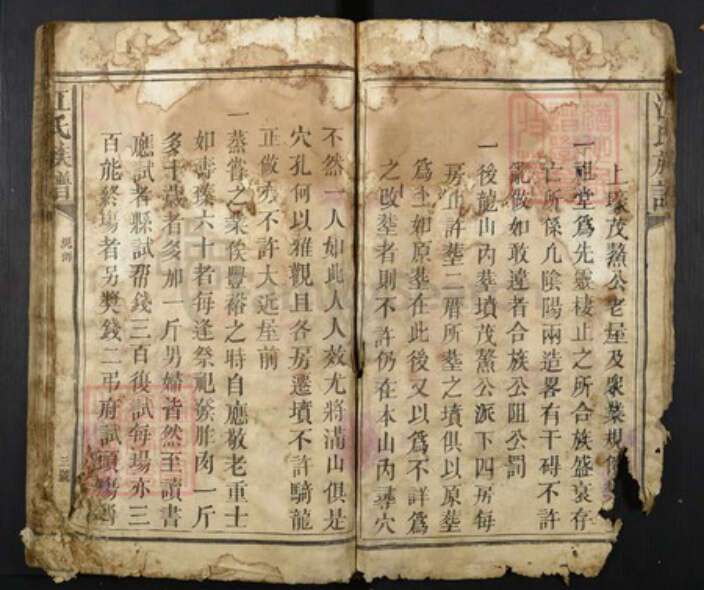 上琢茂鰲公老屋及衆業規條
一祖堂爲先靈棲止之所合族盛衰存
亡所係凡陰陽兩造畧有干碍不許
亂做如敢違者合族公阻公罰
一後龍山內葬墳茂鰲公派下四房每
房止許塟二厝所塟之墳俱以原塟
爲主如原塟在此後又以爲不詳爲
之改塟者則不許仍在本山內尋穴
不然一人如此人人效尤將滿山俱是
穴孔何以雅觀且各房遷墳不許騎龍
正做亦不許大近屋前
一蒸嘗之業俟豐裕之時自應敬老重士
如壽臻六十者每逢祭祀發胙肉一斤
多十歲者多加一斤男婦皆然至讀書
應試者縣試帮錢三百復試每場亦三
百能終塲者另獎錢二弔府試頭塲
江氏族譜
規條
三號
江氏族譜